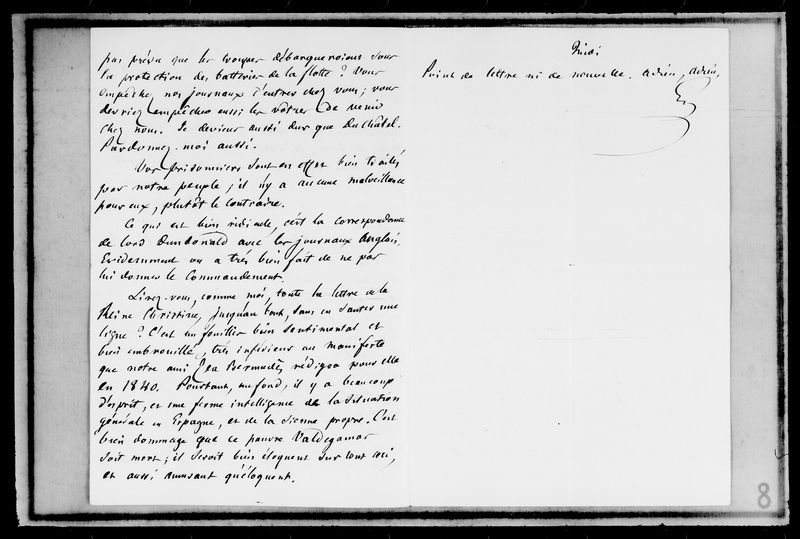 pas prévu que les troupes débarqueroient sous
la protection des batteries de la flotte ? Vous
empêchez nos journaux d'entrer chez vous ; vous
devriez empêcher aussi les vôtres de venir
chez nous. Je deviens aussi dur que Duchâtel.
Pardonnez-moi aussi.
Vos prisonniers sont en effet bien traités
par notre peuple ; il n'y a aucune malveillance
pour eux, plutôt le contraire.
Ce qui est bien ridicule, c'est la correspondance
de lord Dundonald avec les journaux Anglais.
Evidemment on a très bien fait de ne pas
lui donner le commandement.
Lisez-vous, comme moi, toute la lettre de la
Reine Christine, jusqu'au bout, sans en sauter une
ligne ? C'est un fouillis bien sentimental et
bien embrouillé, très inférieur au manifeste
que notre ami Zea Bermudès, rédigea pour elle
en 1840. Pourtant, au fond, il y a beaucoup
d'esprit, et une ferme intelligence de la situation
générale en Espagne, et de la sienne propre. C'est
bien dommage que ce pauvre Valdegamas
soit mort ; il seroit bien éloquent sur tout ceci,
et aussi amusant qu'éloquent.
Midi
Point de lettre ni de nouvelle. Adieu, adieu.
8